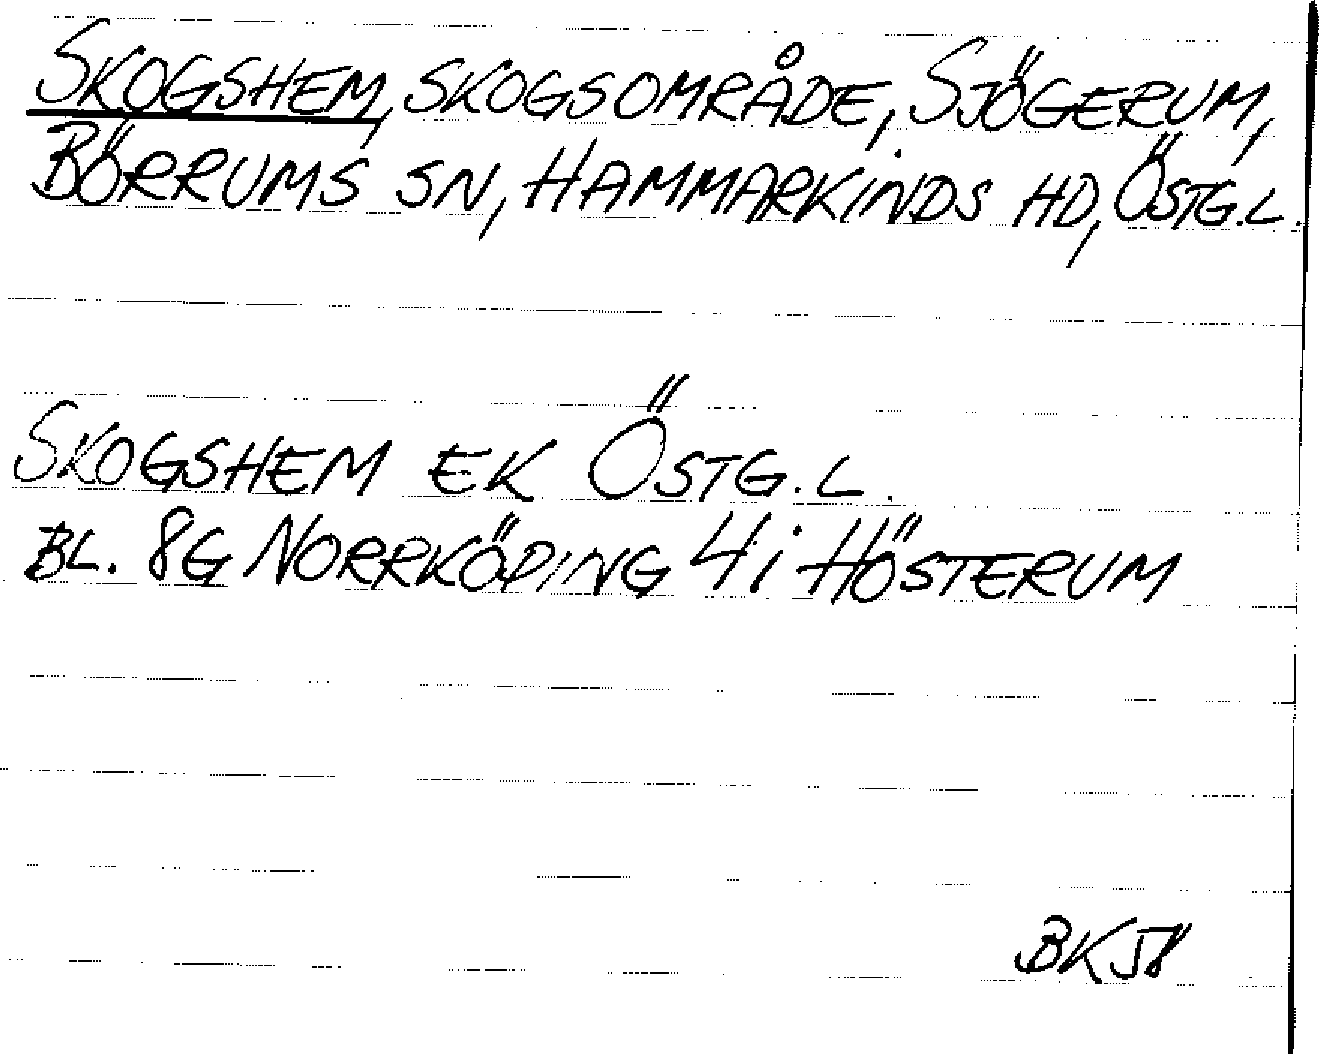 SKOGSHEM, SKOGSOMRÅDE, SJÖGERUM,
BÖRRUMS SN, HAMMARKINDS HD, ÖSTG.L.
SKOGSHEM EK ÖSTG.L.
BL. 8G NORRKÖPING 4i HÖSTERUM